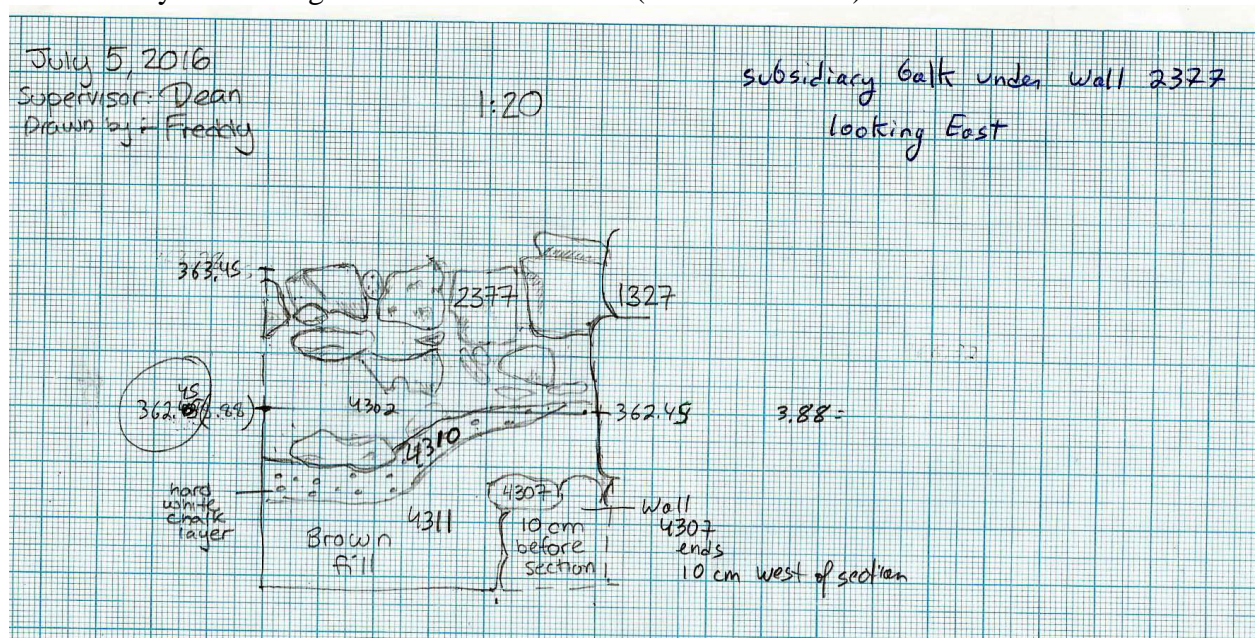 July 5, 2016
Supervisor: Dean
Drawn by: Freddy
1:20
subsidiary balk under Wall 2327
looking East
363.45
2377
1327
45
362. (3.88)
4302
362.45
3.88 =
4310
hard
white
chalk
layer
4307
Wall
4307
ends
10 cm west of section
4311
Brown
fill
10 cm
before
section